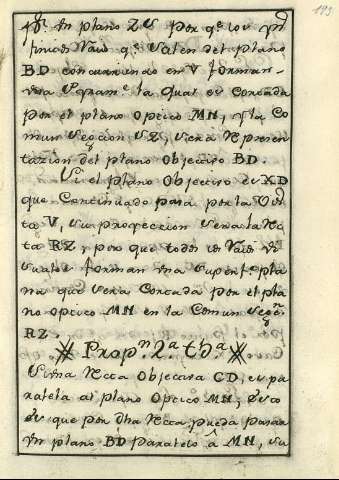 193
un plano Z V por q.e los
q.e salen del plano
BD concurriendo en V forman
una la qual es cortada
por el plano optico MN, y la Co
mun Seccion SZ, sera represen
tazion del plano objectivo BD.
Si el plano objectivo es XD
que continuado pasa por la Vis
ta V, su proyeccion sera la Rec
ta RZ y por que todos los Raios Vi
suales forman una superf.e pla
na que sera cortada por el pla
no optico MN en la comun Secc.n
RZ.
Prop.n 2.a th.a
Si una Recta objectiva CD, es pa
ralela al plano optico MN, esto
es que por dha Recta pueda pasar
un plano BD paralelo â MN, su